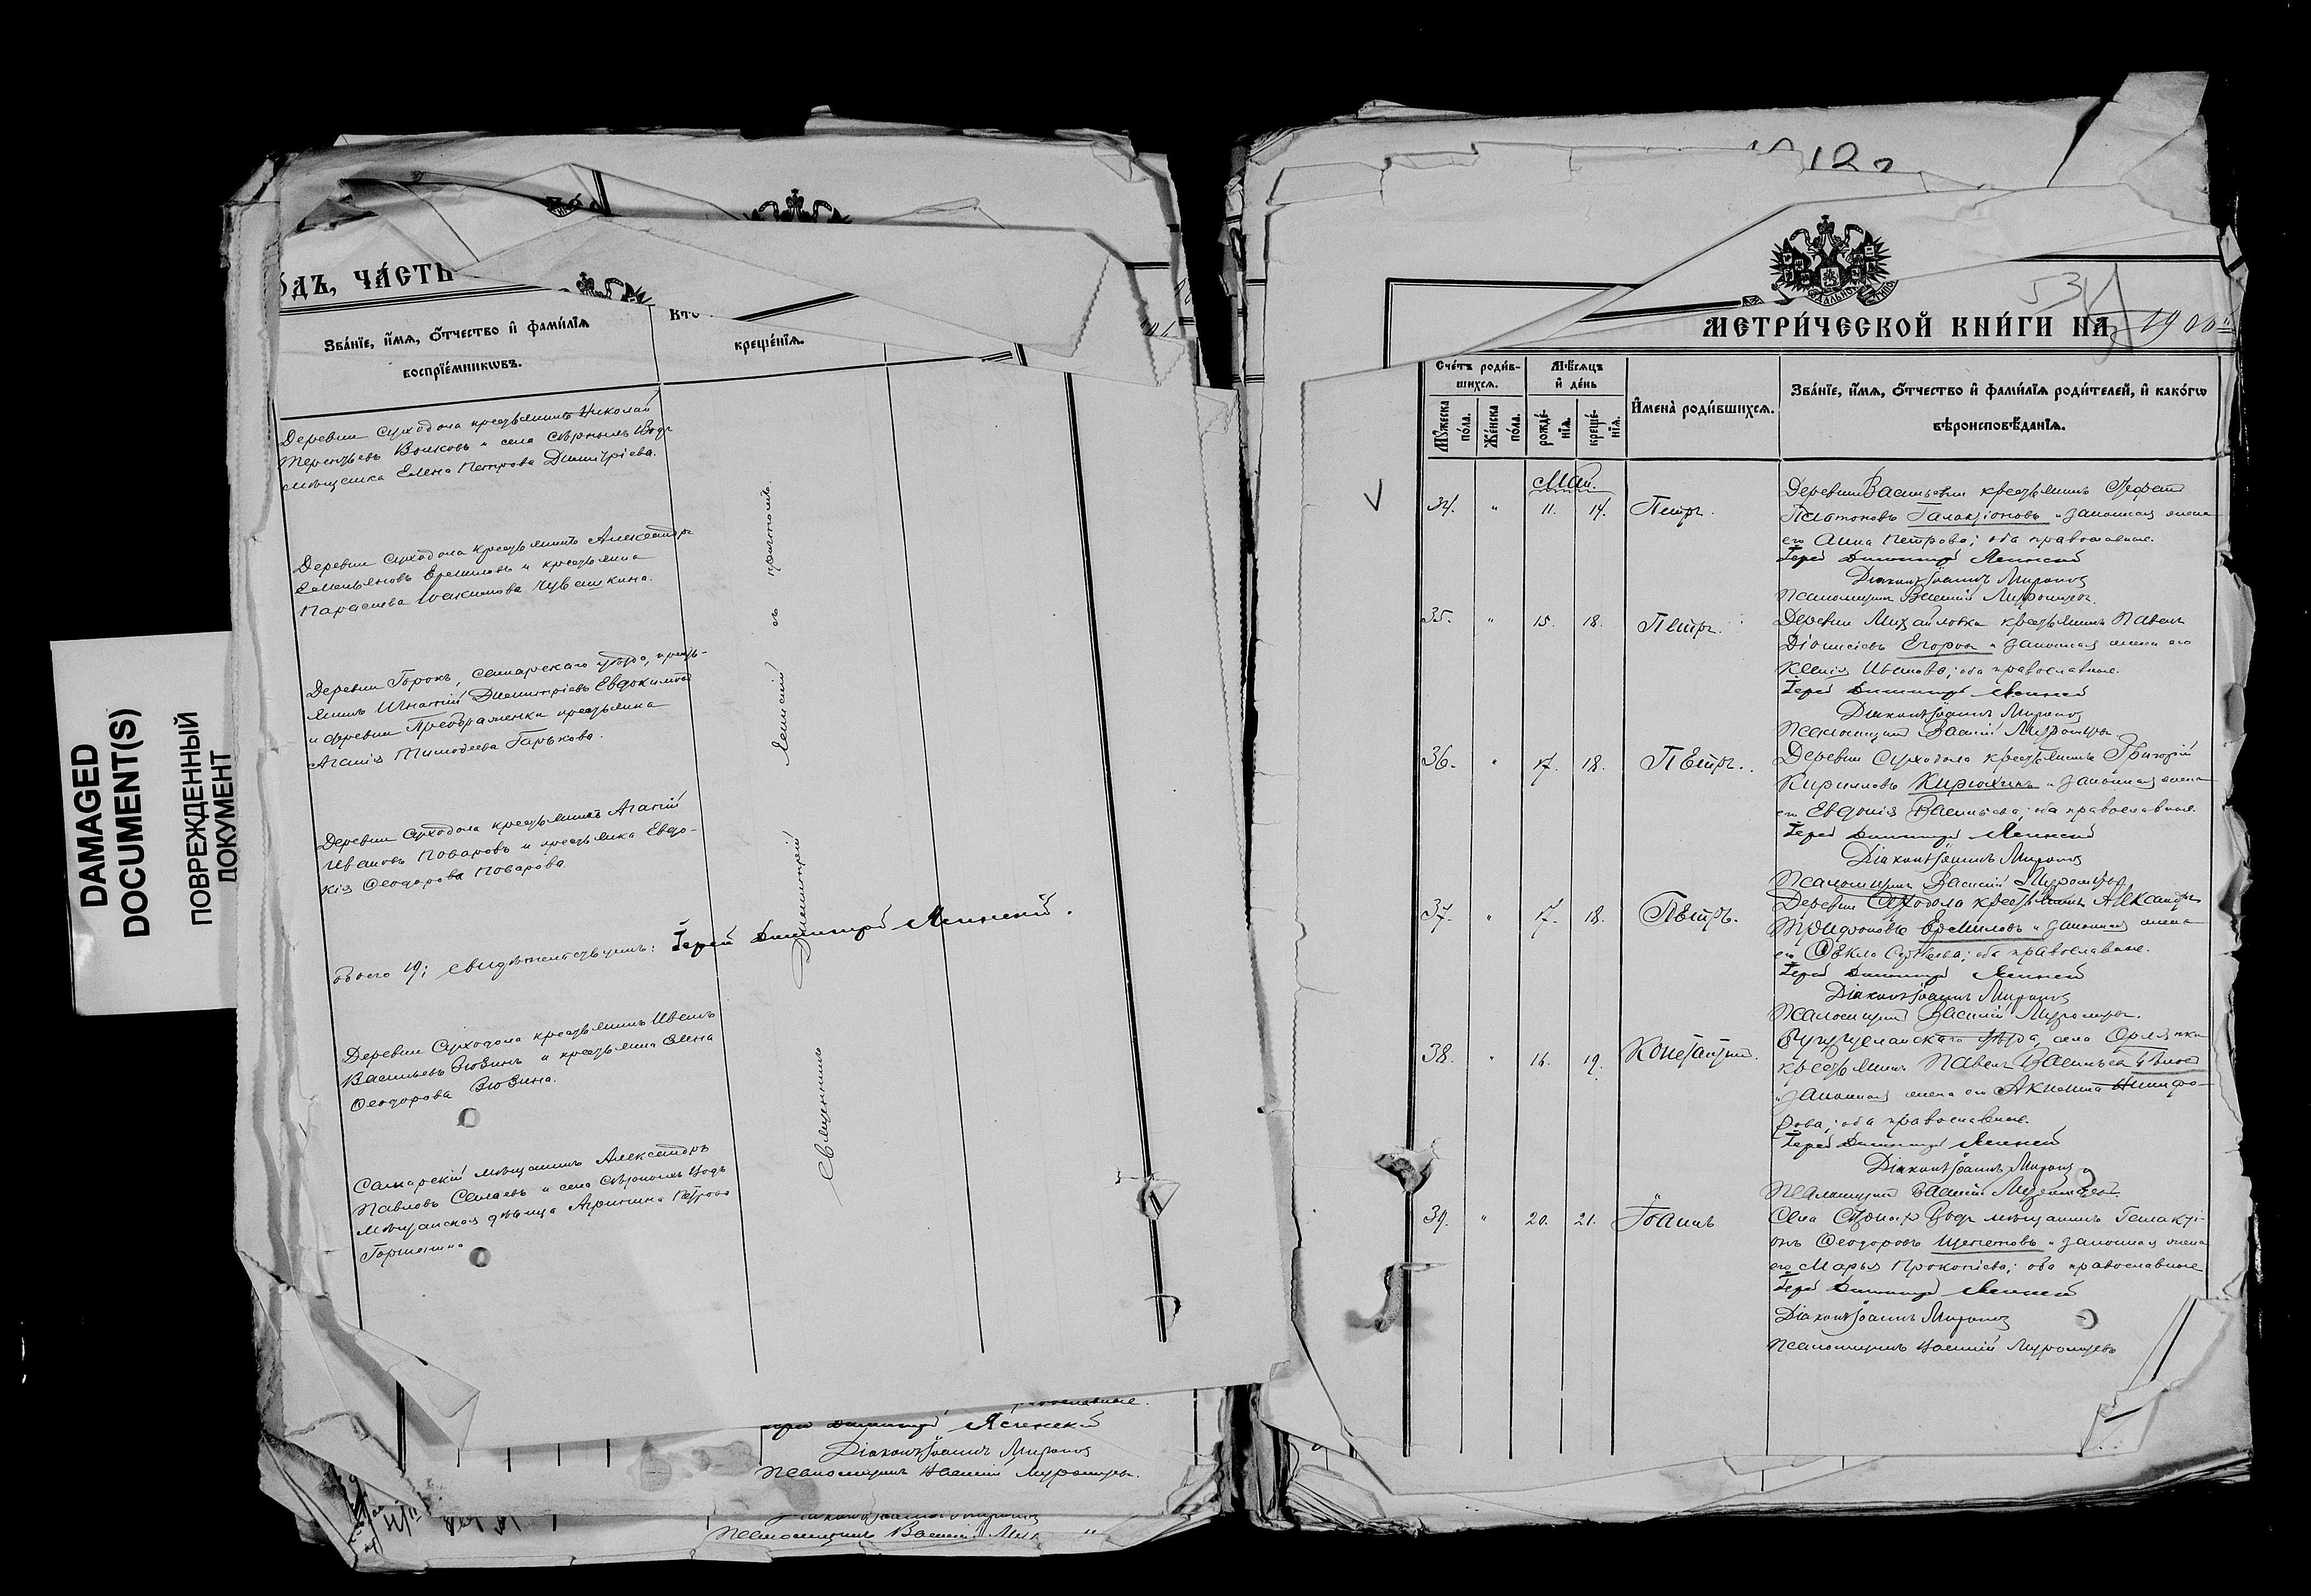 DAMAGED
DOCUMENT(S)
ПОВРЕЖДЕННЫЙ
ДОКУМЕНТ
О́ДЪ, ЧА́СТЬ
Зва́нїе, и҆́мѧ, ѻ҆́тчество и҆ фами́лїѧ
воспрїе́мникѡвъ.
Кто
креще́нїѧ.
Деревни Суходола крестьянинъ Николай
Терентьевъ Волковъ и села Сѣрныхъ Водъ
мѣщанка Елена Петрова Димитріева.
Деревни Суходола крестьянинъ Александръ
Емельяновъ Ермиловъ и крестьянка
Параскева Іоакимова Чувашкина.
Деревни Горокъ, Самарскаго уѣзда, кресть-
янинъ Игнатій Димитріевъ Евдокимовъ
и деревни Преображенки крестьянка
Агапія Тимофеева Гарькова.
Деревни Суходола крестьянинъ Агапій
Ивановъ Поваровъ и крестьянка Евдо-
кія Ѳеодорова Поварова.
обоего 19; свидѣтельствуемъ: Іерей Димитрій Ясенскій.
Деревни Суходола крестьянинъ Иванъ
Васильевъ Зюзинъ и крестьянка Елена
Ѳеодорова Зюзина.
Самарскій мѣщанинъ Александръ
Павловъ Салаевъ и села Сѣрныхъ Водъ
мѣщанская дѣвица Агрипина Петрова
Священникъ Димитрій Ясенскій съ причтомъ.
православные.
Іерей Димитрій Ясенскій
Діаконъ Іоаннъ Мироновъ
Псаломщикъ Василій Муромцевъ.
Псаломщикъ Василій
120
53
МЕТРИ́ЧЕСКОЙ КНИ́ГИ НА 1900
Сче́тъ роди́в-
шихсѧ.
Мꙋ́жеска по́ла.
Же́нска по́ла.
Мѣ́сѧцъ
и҆ де́нь
рожде́-
нїѧ.
креще́-
нїѧ.
И҆мена̀ роди́вшихсѧ.
Зва́нїе, и҆́мѧ, ѻ҆́тчество и҆ фами́лїѧ роди́телей, и҆ како́гѡ
вѣроисповѣ́данїѧ.
Май.
34. " 11. 14. Петръ.
Деревни Васильевки крестьянинъ
Платоновъ Галактіоновъ и законная жена
его Анна Петрова; оба православные.
Іерей Димитрій Ясенскій
Діаконъ Іоаннъ Мироновъ
Псаломщикъ Василій Муромцевъ.
35. " 15. 18. Петръ.
Деревни Михайловки крестьянинъ Павелъ
Діонисіевъ Егоровъ и законная жена его
Ксенія Иванова; оба православные.
Іерей Димитрій Ясенскій
Діаконъ Іоаннъ Мироновъ
Псаломщикъ Василій Муромцевъ
36. " 17. 18. Петръ.
Деревни Суходола крестьянинъ Григорій
Кирилловъ Кирюхинъ и законная жена
его Евдокія Васильева; оба православные.
Іерей Димитрій Ясенскій
Діаконъ Іоаннъ Мироновъ
Псаломщикъ Василій Муромцевъ
37. " 17. 18. Петръ.
Деревни Суходола крестьянинъ Александръ
Трифоновъ Ермиловъ и законная жена
его Ѳекла Сергѣева; оба православные.
Іерей Димитрій Ясенскій
Діаконъ Іоаннъ Мироновъ
Псаломщикъ Василій Муромцевъ.
38. " 16. 19. Константинъ.
Бугурусланскаго уѣзда, села Орлянки
крестьянинъ Павелъ Васильевъ
и законная жена его Акилина Никифо-
рова; оба православные.
Іерей Димитрій Ясенскій
Діаконъ Іоаннъ Мироновъ
Псаломщикъ Василій Муромцевъ.
39. " 20. 21. Іоаннъ
Села Сѣрныхъ Водъ мѣщанинъ Галакті-
онъ Ѳеодоровъ Щепетовъ и законная жена
его Марья Прокопіева; оба православные
Іерей Димитрій Ясенскій
Діаконъ Іоаннъ Мироновъ
Псаломщикъ Василій Муромцевъ